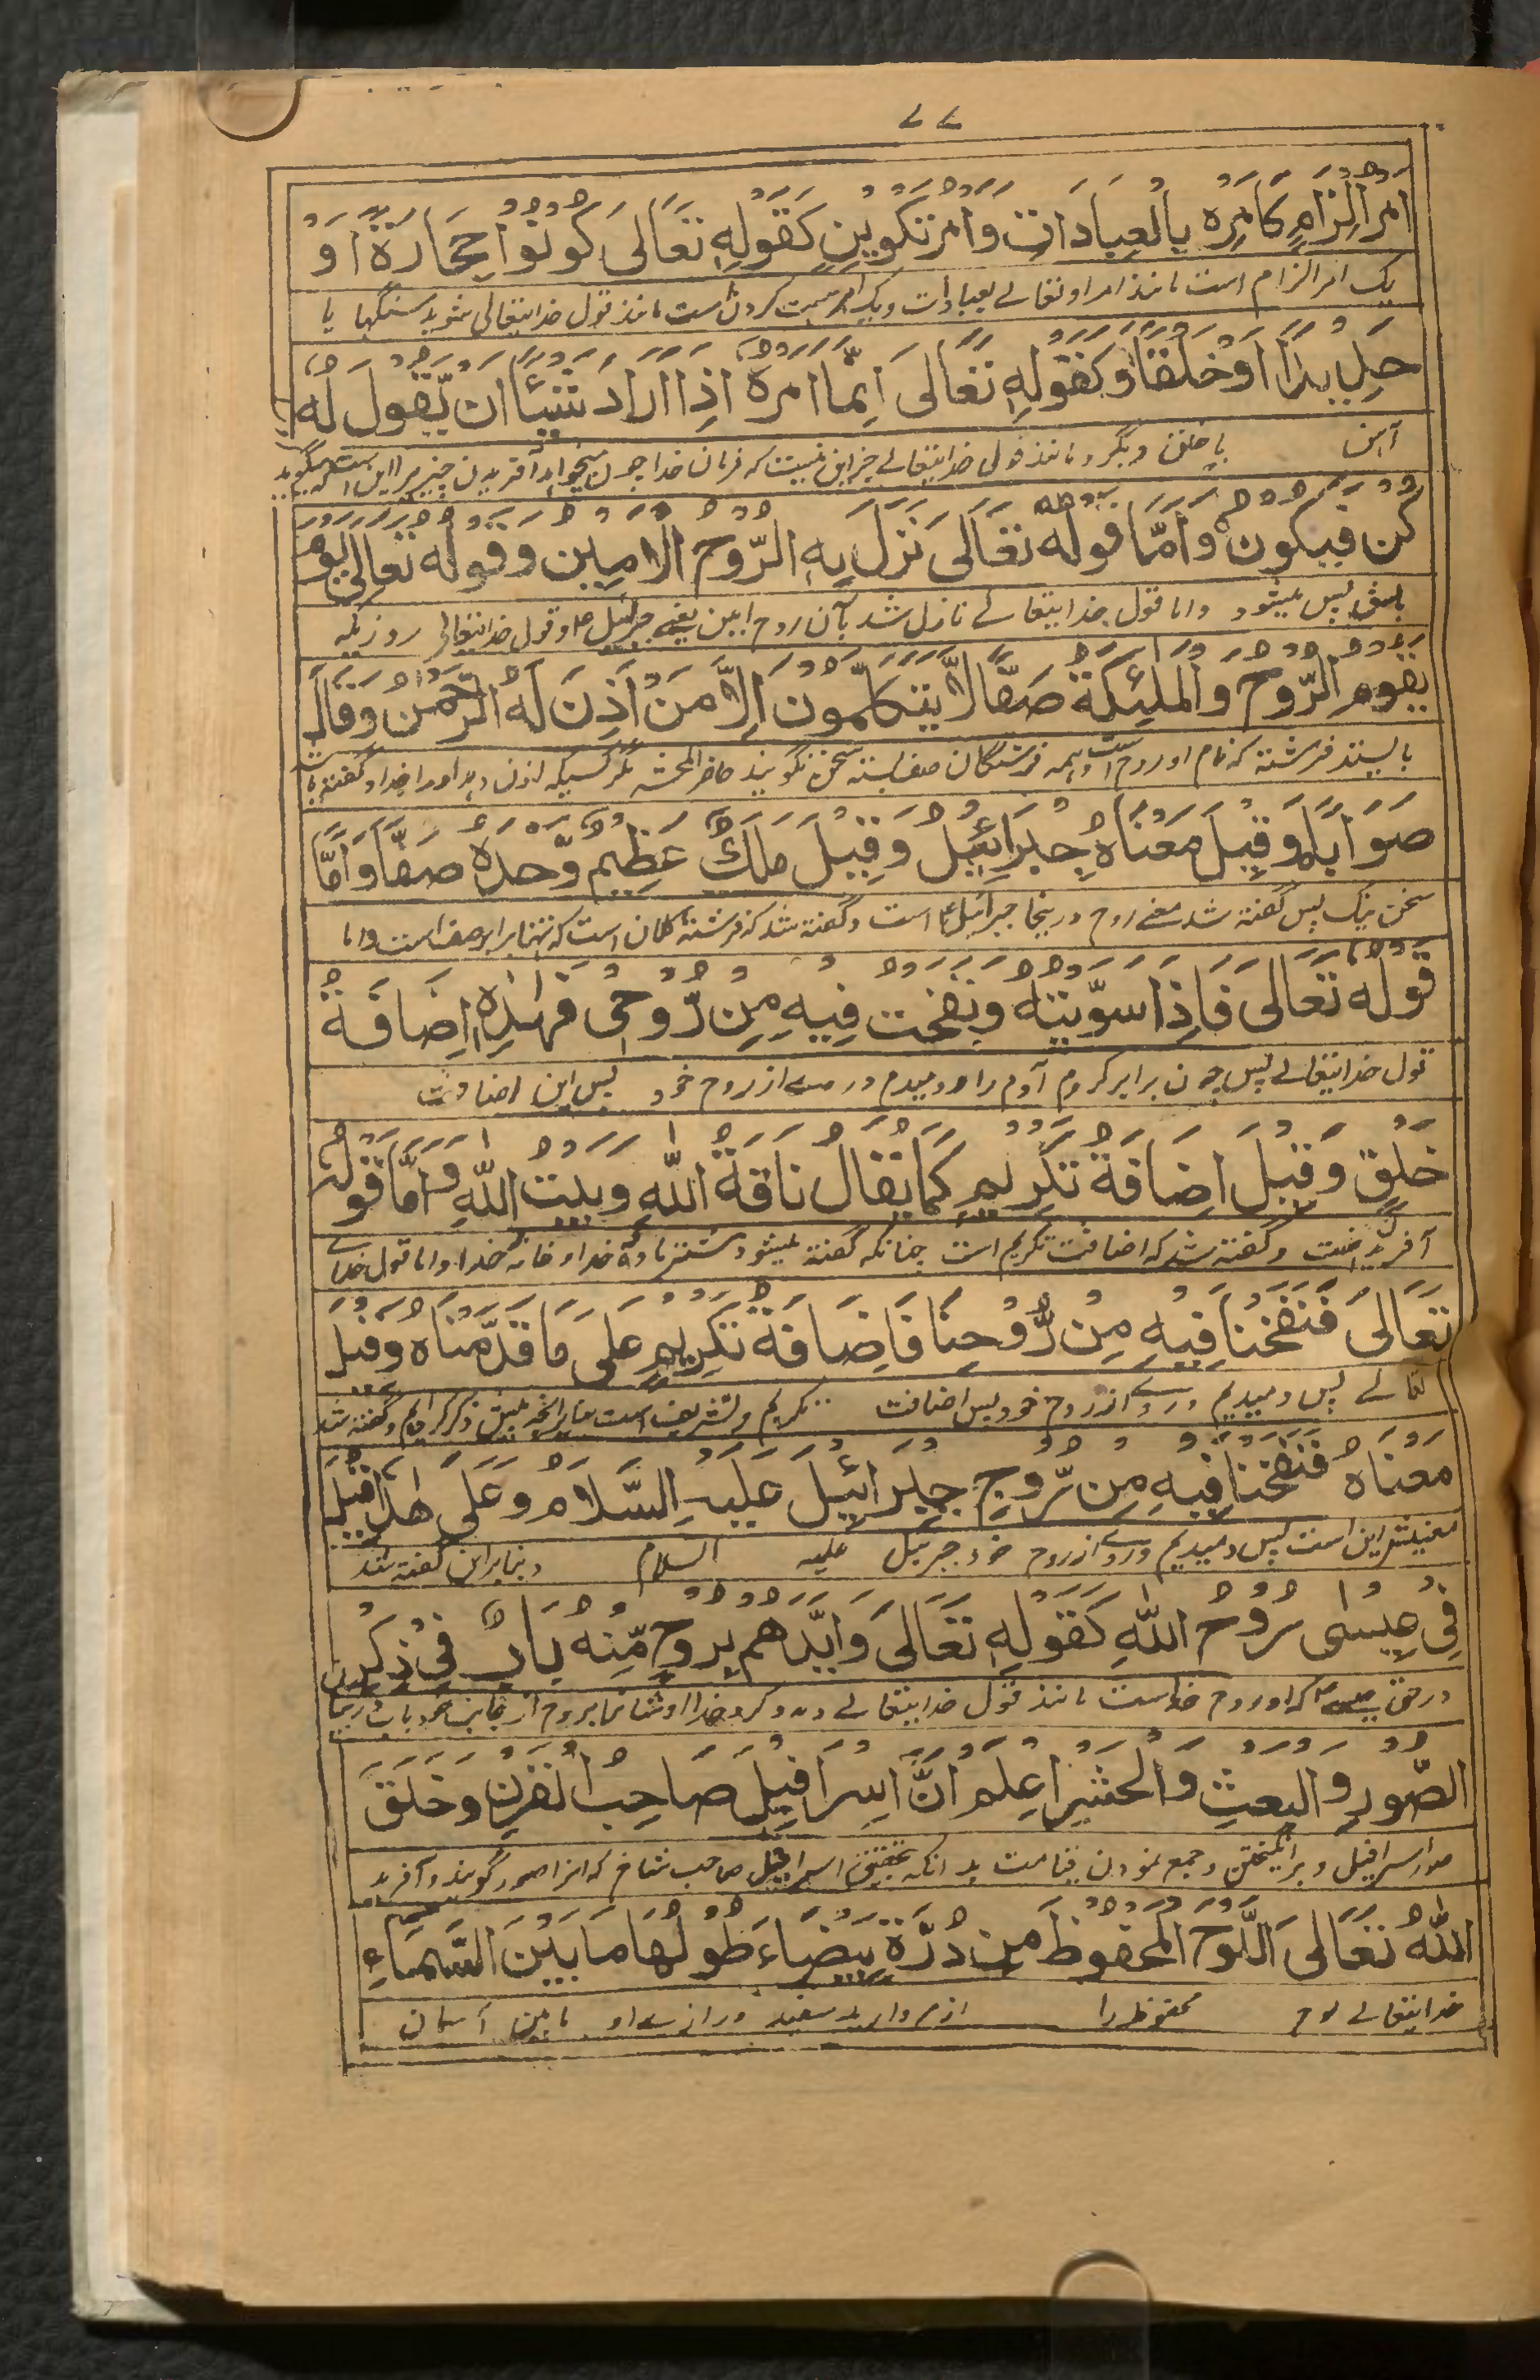 ۷۷
اَمْرُ اِلْزَامٍ كَاَمْرِهٖ بِالْعِبَادَاتِ وَاَمْرُ تَكْوِيْنٍ كَقَوْلِهٖ تَعَالٰى كُوْنُوْا حِجَارَةً اَوْ
یک امر الزام است مانند امر او تعالے بعبادات و یک امر هست کردن است مانند قول خدایتعالی شوید سنگها یا
حَدِيْدًا اَوْ خَلْقًا وَكَقَوْلِهٖ تَعَالٰى اِنَّمَا اَمْرُهٗ اِذَا اَرَادَ شَيْئًا اَنْ يَّقُوْلَ لَهٗ
آهن یا خلق دیگر و مانند قول خدایتعالے جز این نیست که فرمان خدا چون میخواهد آفریدن چیزیرا این است که میگوید
كُنْ فَيَكُوْنُ وَاَمَّا قَوْلُهٗ تَعَالٰى نَزَلَ بِهِ الرُّوْحُ الْاَمِيْنُ وَقَوْلُهٗ تَعَالٰى يَوْمَ
باش پس میشود واما قول خدایتعالے نازل شد بآن روح امین یعنے جبرئیل وقول خدایتعالی روزیکه
يَقُوْمُ الرُّوْحُ وَالْمَلٰٓئِكَةُ صَفًّا لَّا يَتَكَلَّمُوْنَ اِلَّا مَنْ اَذِنَ لَهُ الرَّحْمٰنُ وَقَالَ
بایستد فرشته که نام او روح است وهمه فرشتگان صف بسته سخن نگویند حاضر المحشر مگر کسیکه اذن دهد او را خدا و گفته باشد
صَوَابًا وَقِيْلَ مَعْنَاهُ جِبْرَائِيْلُ وَقِيْلَ مَلَكٌ عَظِيْمٌ وَّحْدَهٗ صَفًّا وَاَمَّا
سخن نیک پس گفته شد معنے روح درینجا جبرائیل است و گفته شد که فرشته کلان است که تنها برابر صف است واما
قَوْلُهٗ تَعَالٰى فَاِذَا سَوَّيْتُهٗ وَنَفَخْتُ فِيْهِ مِنْ رُّوْحِىْ فَهٰذِهٖ اِضَافَةُ
قول خدایتعالے پس چون برابر کردم آدم را و دمیدم در وے از روح خود پس این اضافت
خَلْقٍ وَقِيْلَ اِضَافَةُ تَكْرِيْمٍ كَمَا يُقَالُ نَاقَةُ اللّٰهِ وَبَيْتُ اللّٰهِ وَاَمَّا قَوْلُهٗ
و گفته شد که اضافت تکریم است چنانکه گفته میشود شتر ماده خدا و خانه خدا واما قول خداے
تَعَالٰى فَنَفَخْنَا فِيْهِ مِنْ رُّوْحِنَا فَاِضَافَةُ تَكْرِيْمٍ عَلٰى مَا قَدَّمْنَاهُ وَقِيْلَ
تعالے پس دمیدیم در وے از روح خود پس اضافت تکریم وتشریف است بنا بر آنچه پیش ذکر کردیم وگفته شد
مَعْنَاهُ فَنَفَخْنَا فِيْهِ مِنْ رُّوْحِ جِبْرَائِيْلَ عَلَيْهِ السَّلَامُ وَعَلٰى هٰذَا قِيْلَ
معنیش این است پس دمیدیم در وے از روح خود جبرئیل علیه السلام و بنا بر این گفته شد
فِىْ عِيْسٰى رُوْحُ اللّٰهِ كَقَوْلِهٖ تَعَالٰى وَاَيَّدَهُمْ بِرُوْحٍ مِّنْهُ بَابٌ فِىْ ذِكْرِ
در حق عیسے که او روح خداست مانند قول خدایتعالے ومدد کرد خدا اوشانرا بروح از جانب خود باب در بیان
الصُّوْرِ وَالْبَعْثِ وَالْحَشْرِ اِعْلَمْ اَنَّ اِسْرَافِيْلَ صَاحِبُ الْقَرْنِ وَخَلَقَ
صور اسرافیل و برانگیختن و جمع نمودن قیامت بدانکه تحقیق اسرافیل صاحب شاخ که انرا صور گویند و آفرید
اللّٰهُ تَعَالٰى اللَّوْحَ الْمَحْفُوْظَ مِنْ دُرَّةٍ بَيْضَاءَ طُوْلُهَا مَا بَيْنَ السَّمَاءِ
خدایتعالے لوح محفوظ را از مروارید سفید درازے او مابین آسمان